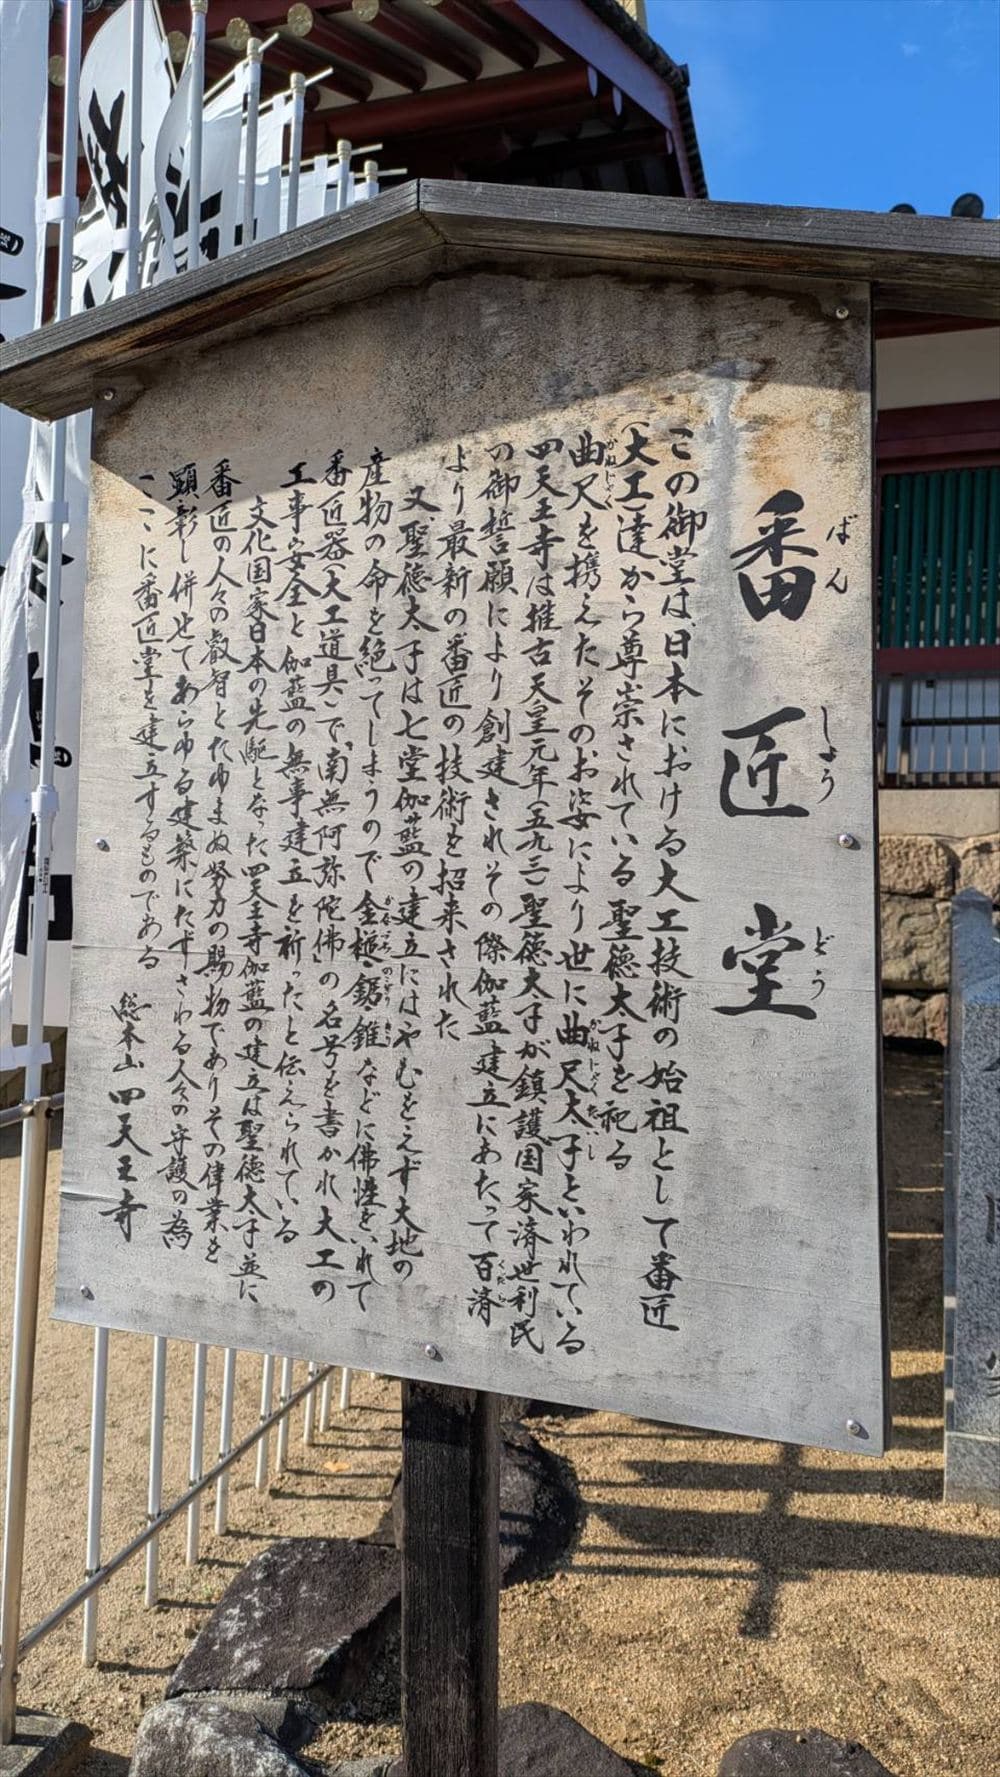 番匠堂
ばんしょうどう
この御堂は、日本における大工技術の始祖として番匠
(大工)達から尊崇されている聖徳太子を祀る
曲尺を携えたそのお姿により世に曲尺太子といわれている
かねじゃく
かねじゃくたいし
四天王寺は推古天皇元年(五九三)聖徳太子が鎮護国家済世利民
の御誓願により創建されその際伽藍建立にあたって百済
くだら
より最新の番匠の技術を招来された
又聖徳太子は七堂伽藍の建立にはやむをえず大地の
産物の命を絶ってしまうので金槌、鋸、錐などに佛性をいれて
かなづち
のこぎり
きり
番匠器(大工道具)で「南無阿弥陀佛」の名号を書かれ大工の
工事安全と伽藍の無事建立を祈ったと伝えられている
文化国家日本の先駈となった四天王寺伽藍の建立は聖徳太子並に
番匠の人々の叡智とたゆまぬ努力の賜物でありその偉業を
顕彰し併せてあらゆる建築にたずさわる人々の守護の為
ここに番匠堂を建立するものである
総本山 四天王寺